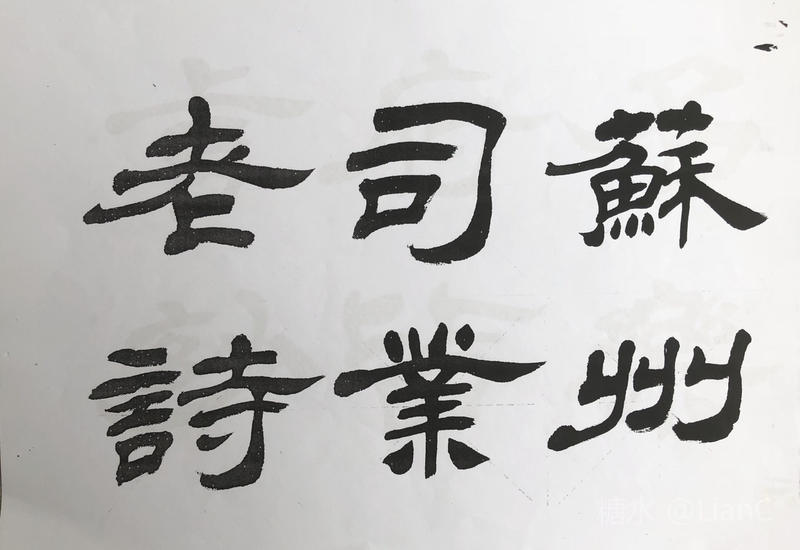 蘇州
司業
老詩
糖水 @LianC